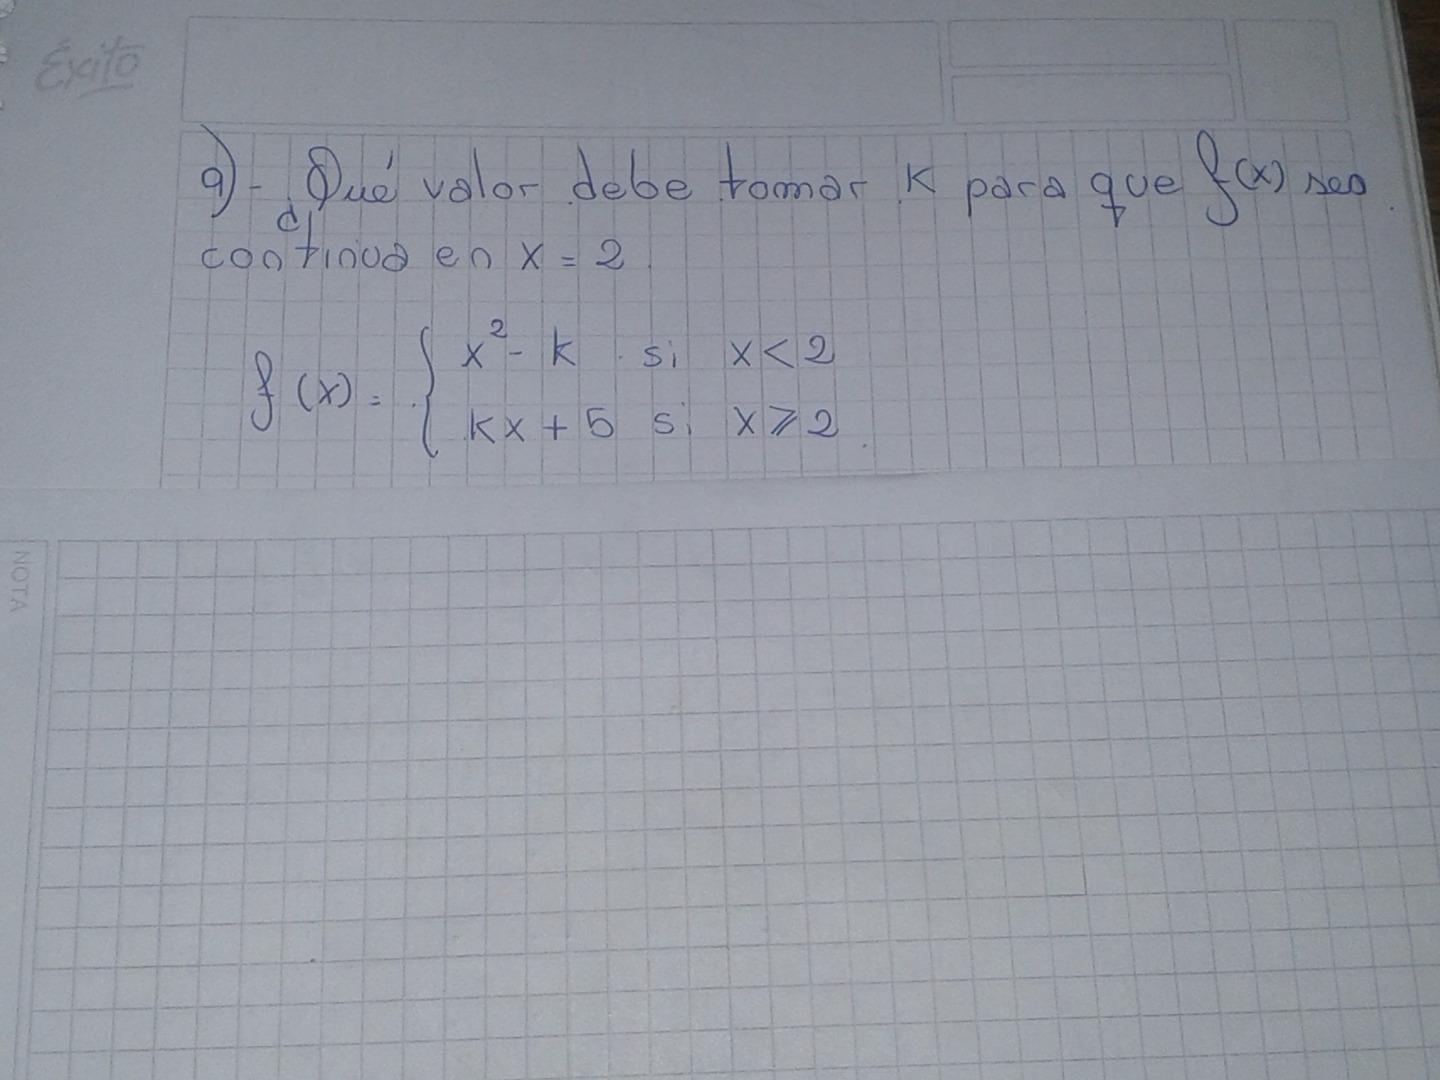 Éxito
9)- ¿Qué valor debe tomar K para que f(x) sea
continua en x = 2
f(x) = { x² - k si x < 2
kx + 5 si x ⩾ 2
NOTA